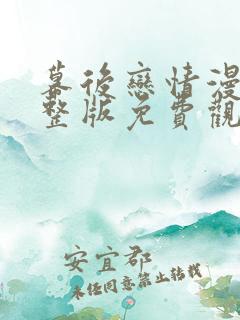 幕後戀情漫
整版免費觀
安宜郡
未經同意禁止轉載